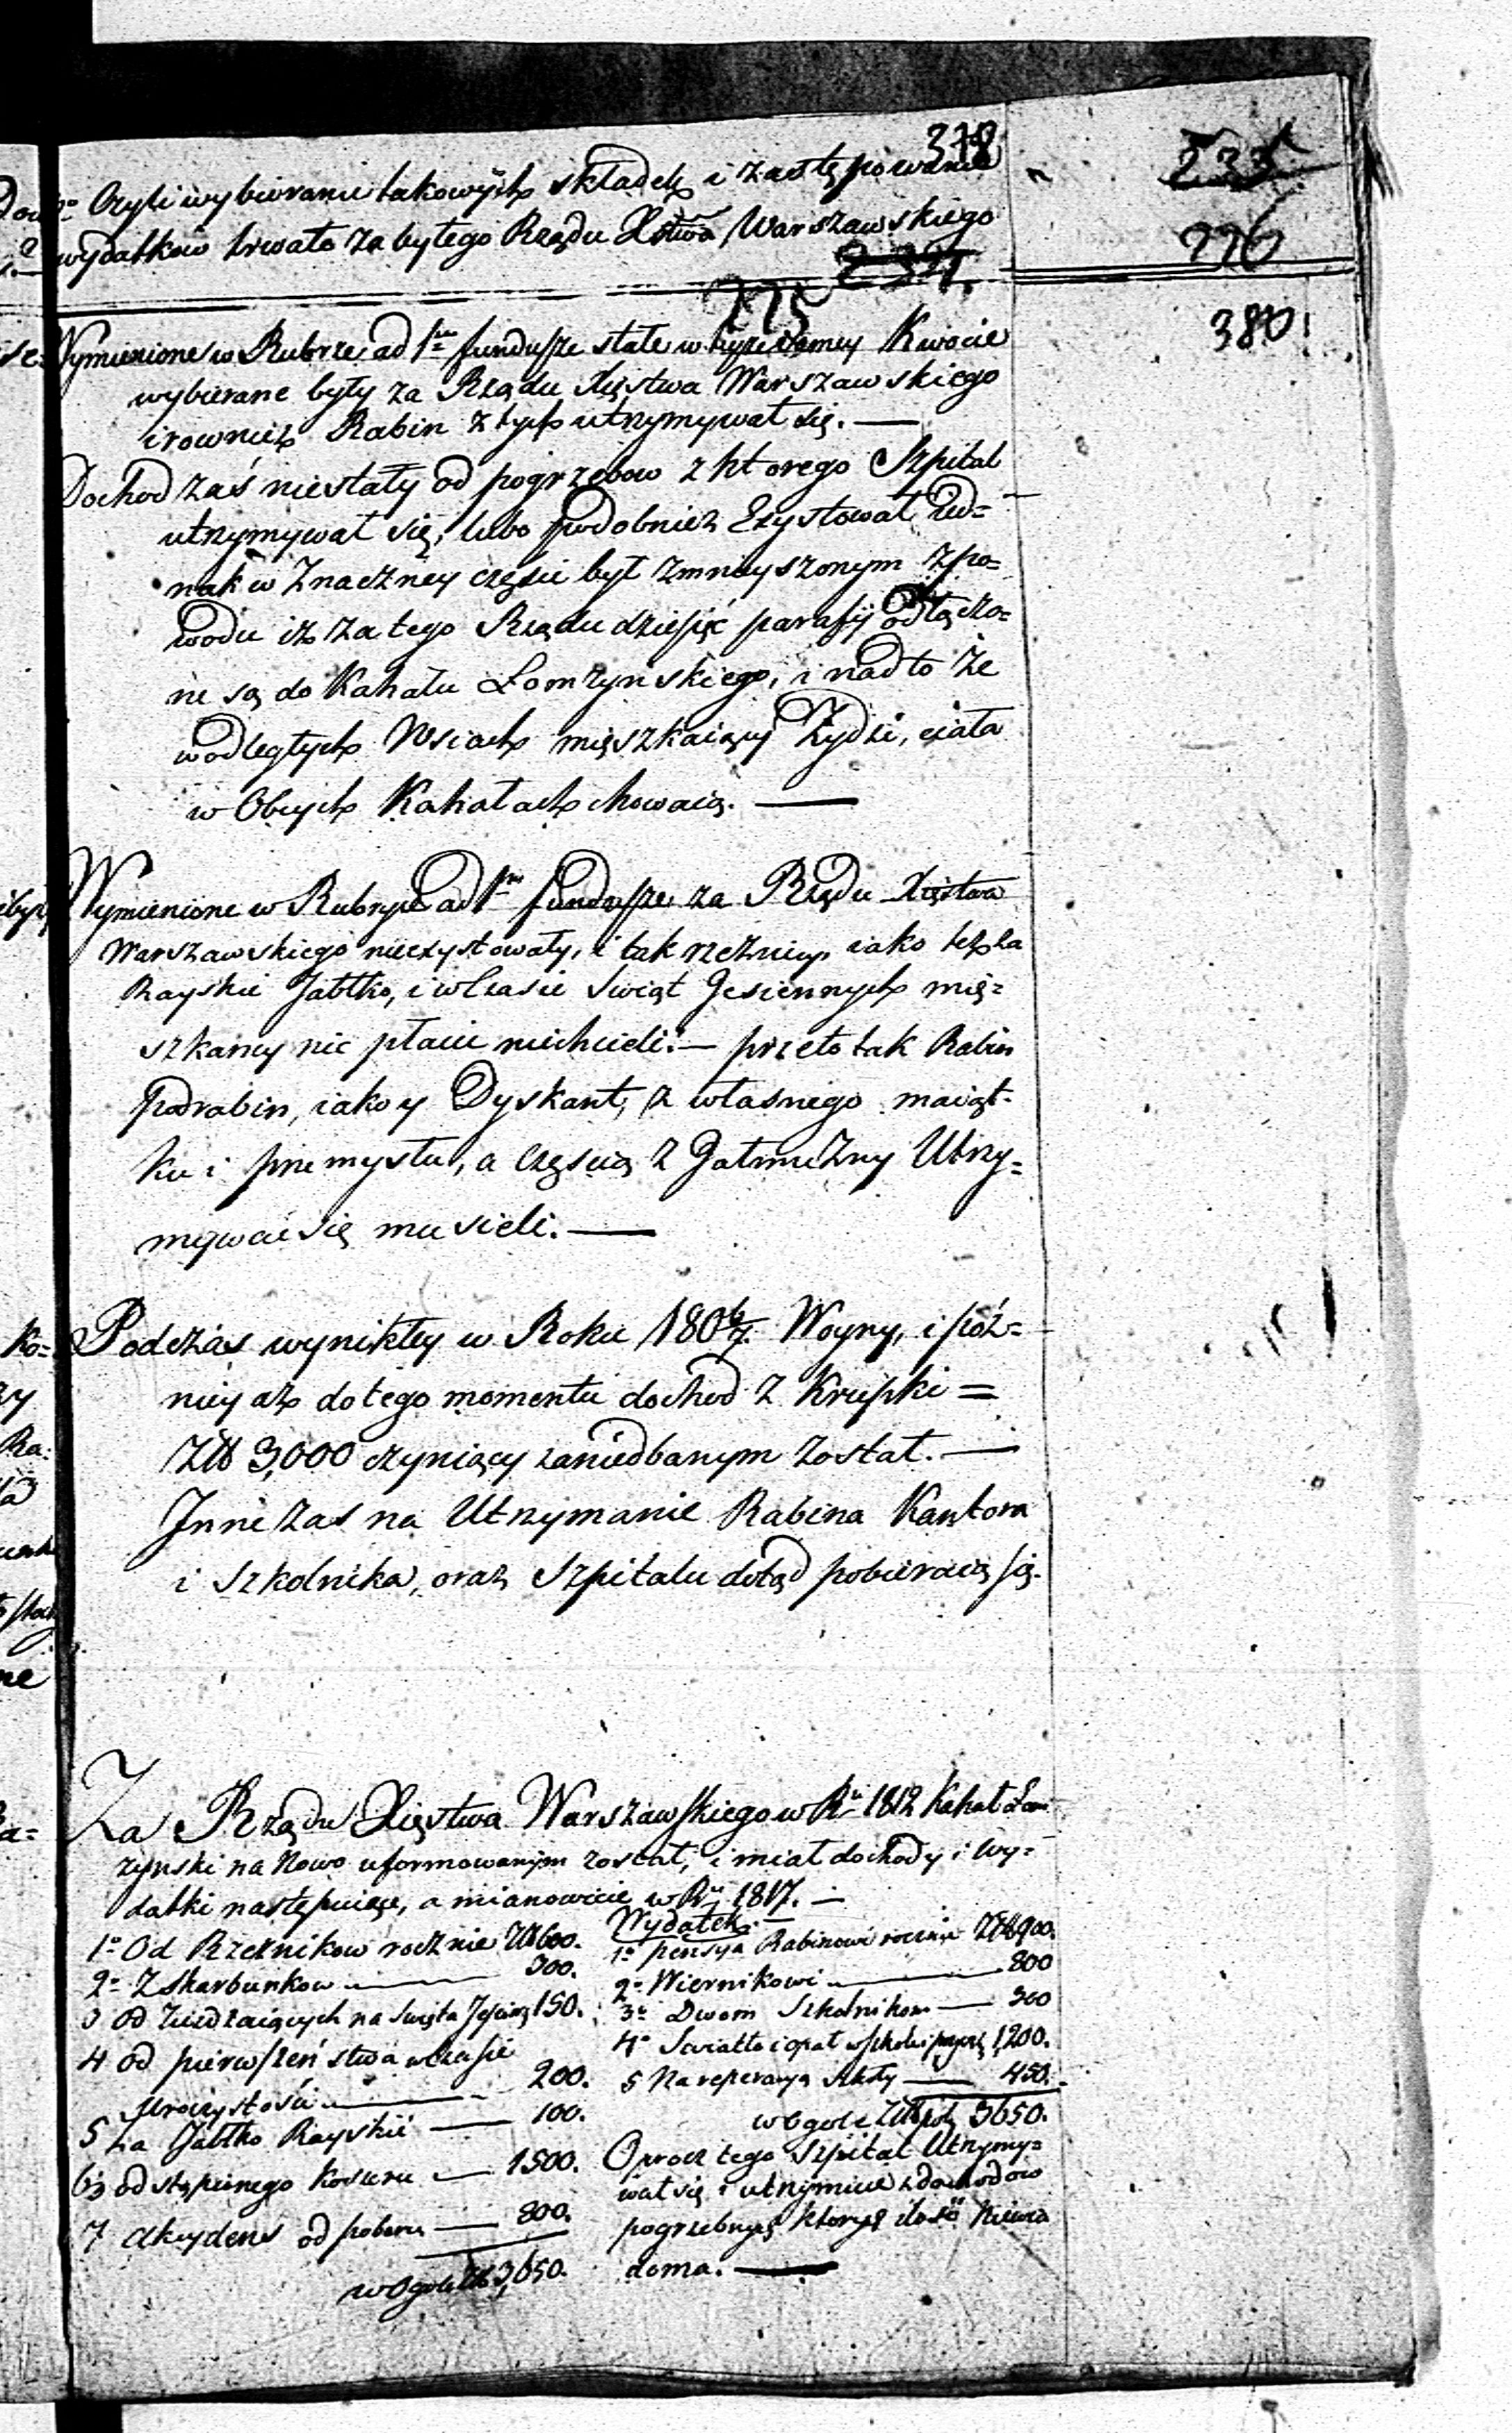 378
Czyli wybieranie takowych składek i zastępowanie
wydatków trwało za byłego Rządu Xstwa Warszawskiego
235
226
237.
225
380
Wymienione w Rubrze ad 1mm fundusze stałe w Kwocie
wybierane były za Rządu Xięstwa Warszawskiego
i rownież Rabin z tych utrzymywał się. —
Dochod zaś niestały od pogrzebow z ktorego Szpital
utrzymywał się, lubo podobnież Exystował ied=
nak w Znaczney części był zmnieyszonym z po=
wodu iż za tego Rządu dziesięć parafij odłączo=
ne są do Kahału Łomżynskiego, i nadto że
w odległych Wsiach mięszkaiący Żydzi, ciała
w Obcych Kahałach chowaią. —
Wymienione w Rubryce ad 1mm fundusze za Rządu Xięstwa
Warszawskiego nieexystowały, i tak rzeźnicy iako też za
Rayskie Jabłko, i w Czasie Swiąt Jesiennych mię=
szkancy nic płacic niechcieli. — przeto tak Rabin
Podrabin, iako y Dyskant, z własnego maiąt=
ku i przemysłu, a częscią z Jałmużny Utrzy=
mywać się musieli. —
Podczas wynikłey w Roku 1806/7. Woyny, i póź=
niey aż do tego momentu dochod z Krupki =
Złł 3,000 czyniący zaniedbanym został. —
Inne zas na Utrzymanie Rabina Kantora
i Szkolnika, oraz Szpitalu dotąd pobieraią się.
Za Rządu Xięstwa Warszawskiego w Ru 1812 Kahał Łom
żynski na Nowo uformowanym został, i miał dochody i Wy=
datki następuiące, a mianowicie w Ru 1817. —
1o Od Rzeznikow rocznie Złł 600.
2o Z Skarbunkow — 300.
3 od Ziezdzaiących na Swięta Jesienę 150.
4 od pierwszeństwa w czasie
Uroczystości — 200.
5 Za Jabłko Rayskie — 100.
6 odstępnego Koszeru — 1500.
7 Akcydens od poboru — 800.
w Ogole Złł 3,650.
Wydatek. —
1o pensya Rabinowi rocznie Złł 900.
2o Wiernikowi — 800
3o Dwom Szkolnikom — 300
4o Swiatło i opał w szkole 1,200.
5 Na reperacyą Szkoły — 450.
w Ogole Złł pol 3650.
Oprocz tego Szpital Utrzymy=
wał się i utrzymuie z dochodow
pogrzebnych ktorych ilość niewia
doma. —